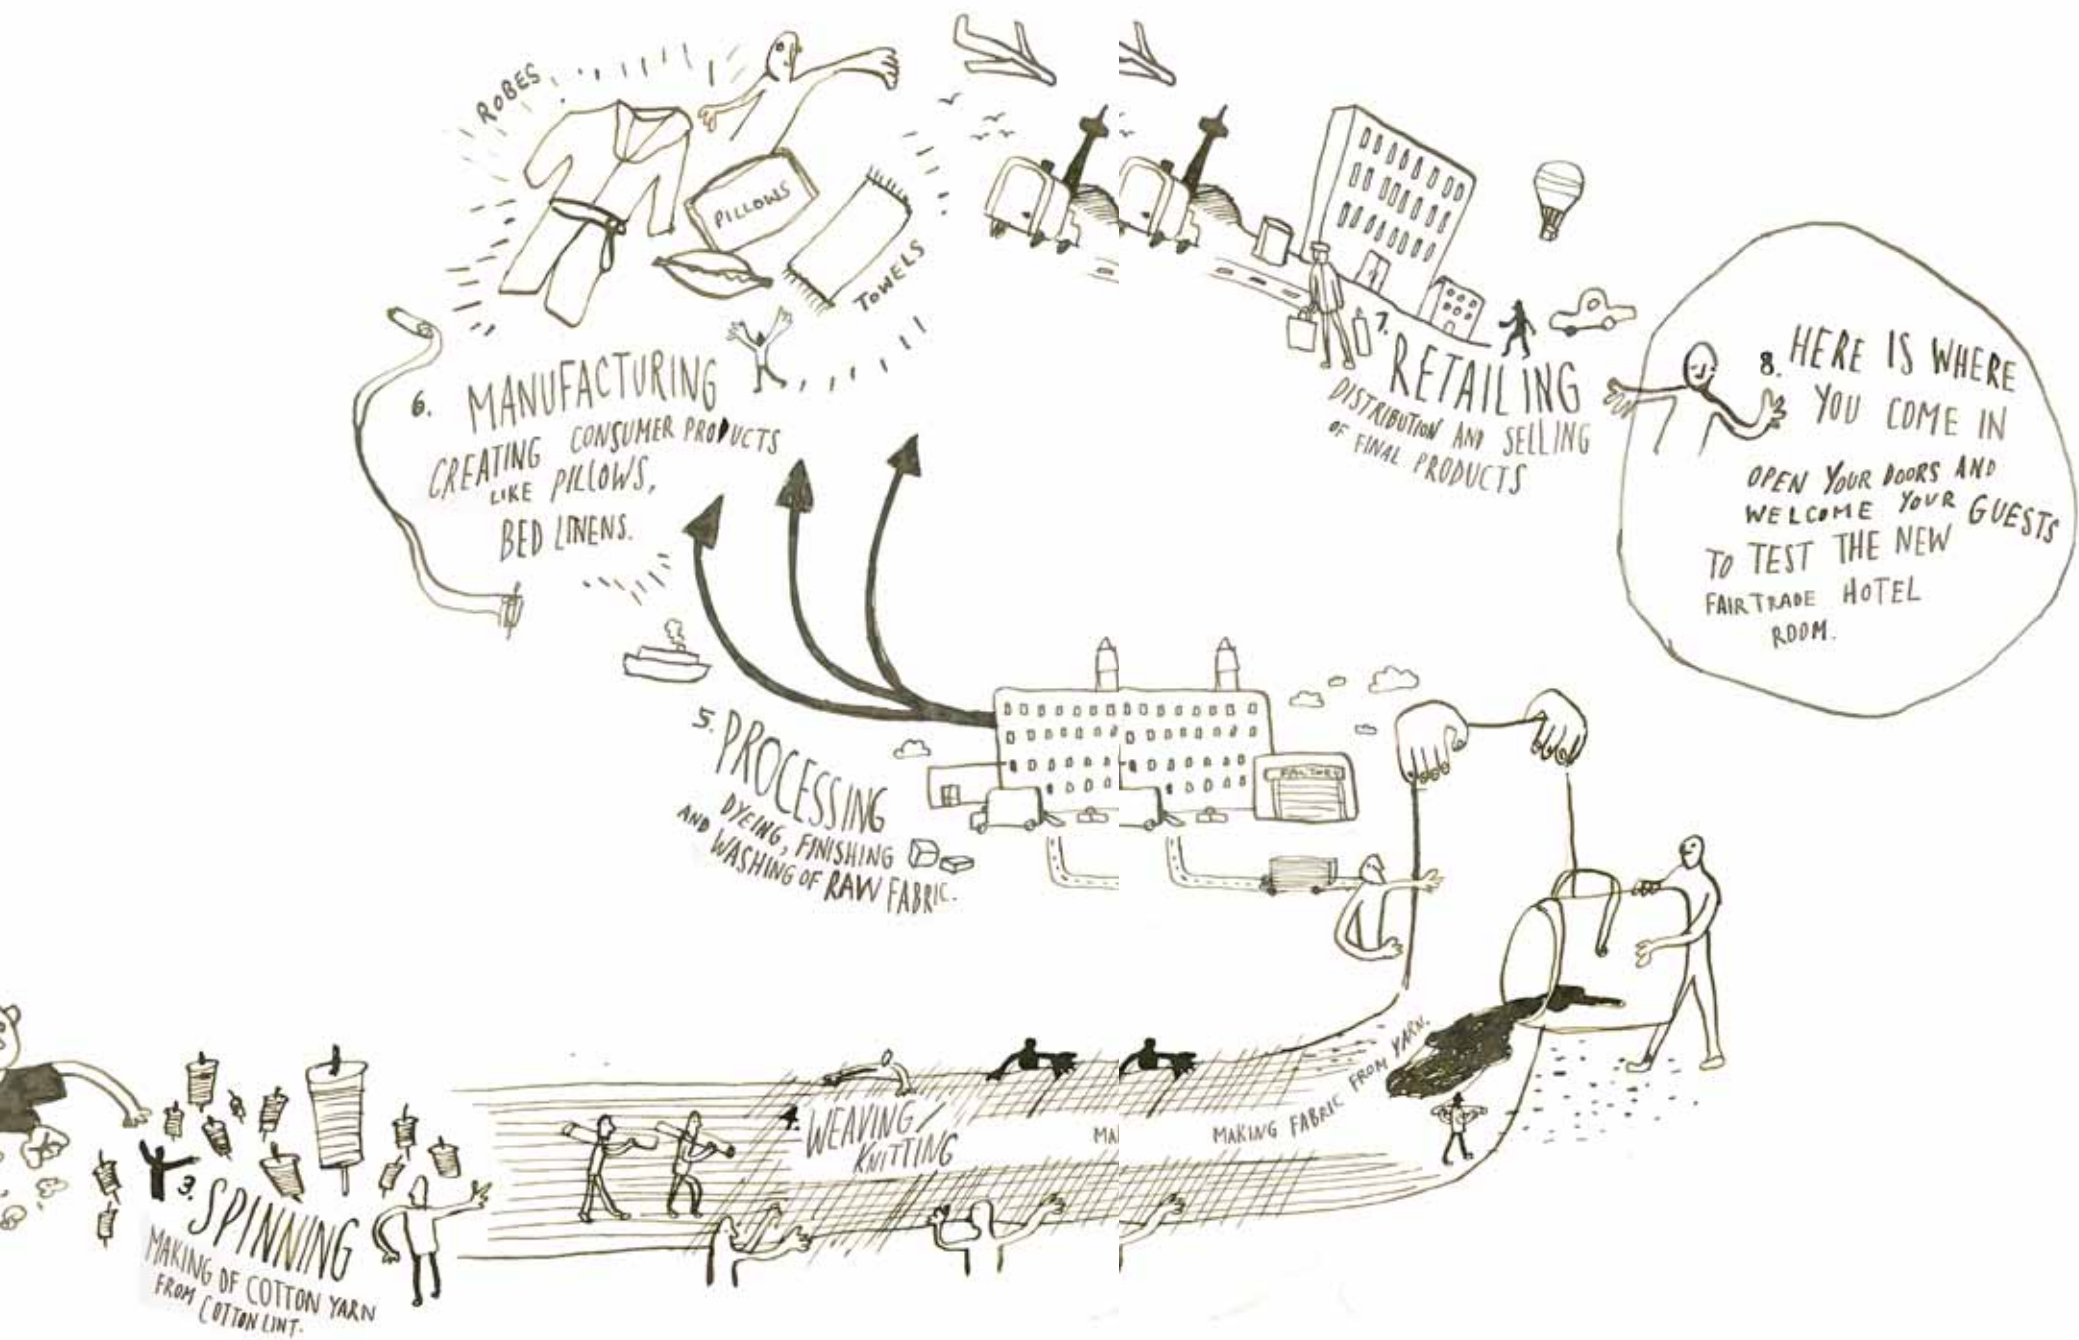 ROBES
PILLOWS
TOWELS
6. MANUFACTURING
CREATING CONSUMER PRODUCTS
LIKE PILLOWS,
BED LINENS.
7. RETAILING
DISTRIBUTION AND SELLING
OF FINAL PRODUCTS
8. HERE IS WHERE
YOU COME IN
OPEN YOUR DOORS AND
WELCOME YOUR GUESTS
TO TEST THE NEW
FAIRTRADE HOTEL
ROOM.
5. PROCESSING
DYEING, FINISHING
AND WASHING OF RAW FABRIC.
FACTORY
4. WEAVING/
KNITTING
MA
MAKING FABRIC FROM YARN.
3. SPINNING
MAKING OF COTTON YARN
FROM COTTON LINT.